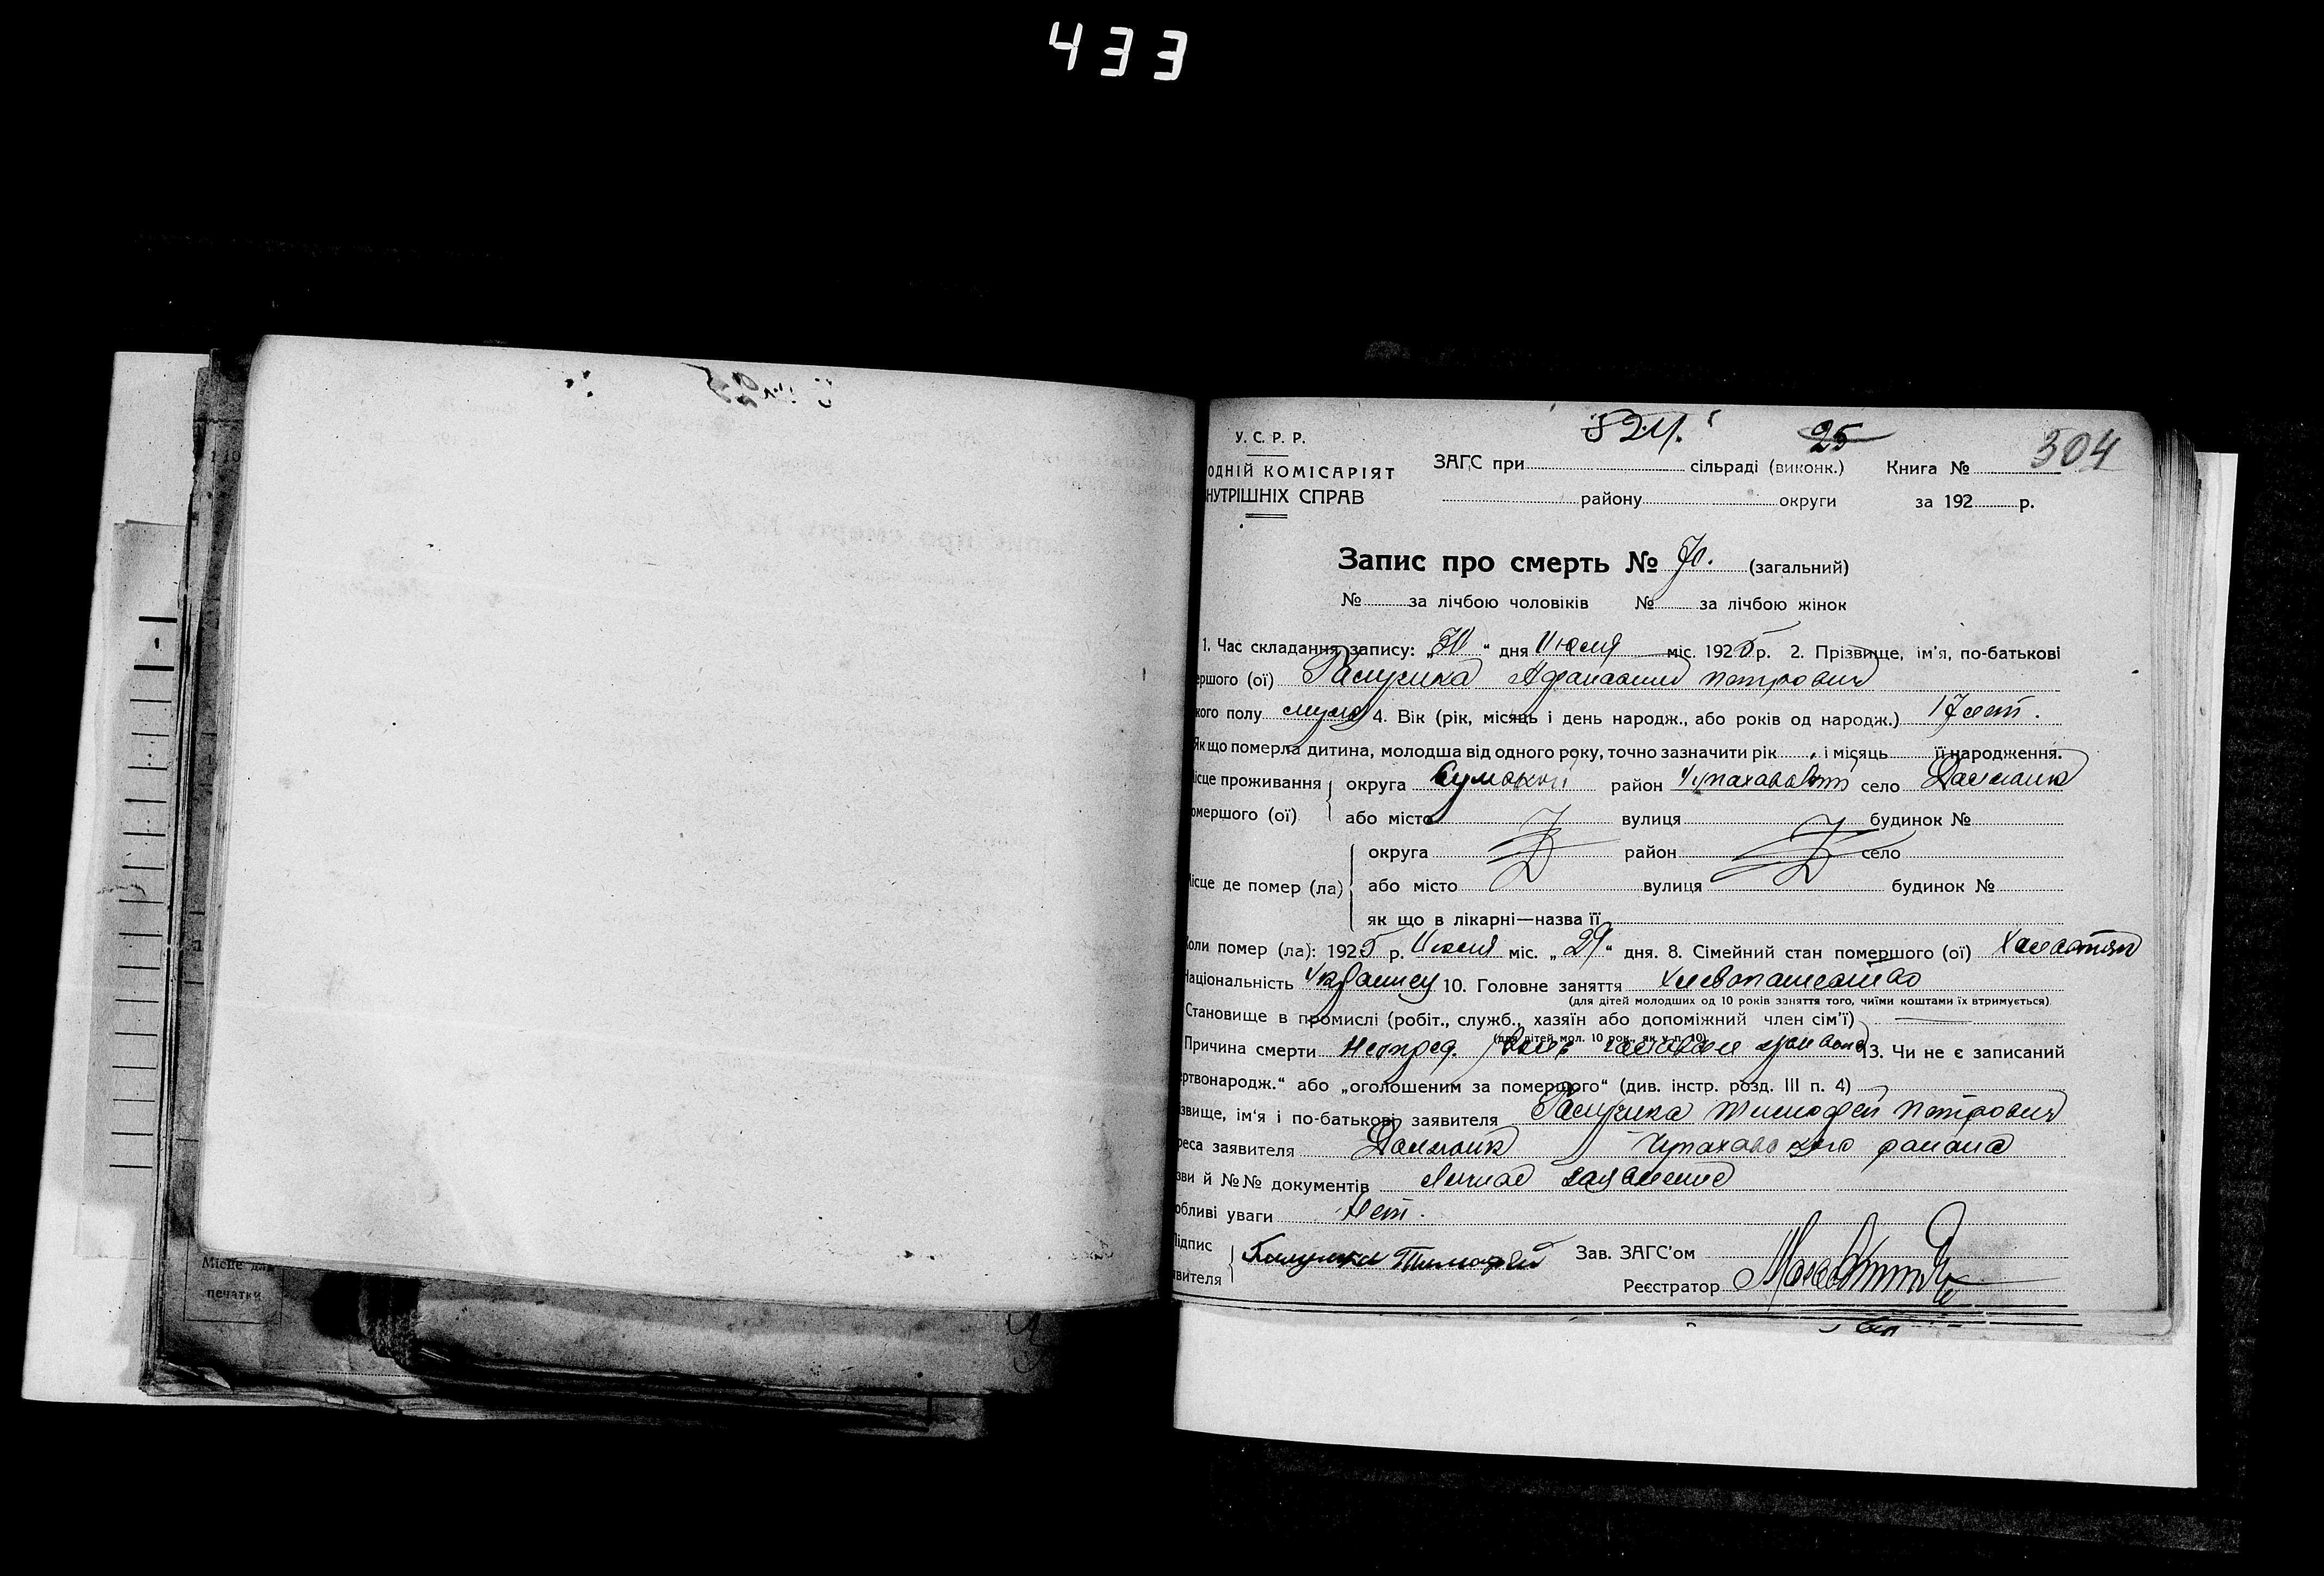 433
У. С. Р. Р.
ОДНІЙ КОМІСАРІЯТ
НУТРІШНІХ СПРАВ
524.
25
304
ЗАГС при сільраді (виконк.) Книга №
району округи за 192 р.
Запис про смерть № 70. (загальний)
№ за лічбою чоловіків № за лічбою жінок
1. Час складання запису: „30“ дня Июля міс. 1925 р. 2. Прізвище, ім'я, по-батькові
ершого (ої) Афанасий Петрович
кого полу муж 4. Вік (рік, місяць і день народж., або років од народж.) 17 лет.
Як що померла дитина, молодша від одного року, точно зазначити рік і місяць її народження.
ісце проживання округа Сумской район село
омершого (ої) або місто вулиця будинок №
округа район село
ісце де помер (ла) або місто вулиця будинок №
як що в лікарні—назва її
оли помер (ла): 1925 р. Июля міс. „29“ дня. 8. Сімейний стан помершого (ої) Холостяк
Національність 10. Головне заняття Хлебопашество
(для дітей молодших од 10 років заняття того, чиїми коштами їх втримується)
Становище в промислі (робіт., служб., хазяїн або допоміжний член сім'ї)
(для дітей мол. 10 рок., як у п. 10)
Причина смерти 13. Чи не є записаний
ертвонародж.“ або „оголошеним за помершого“ (див. інстр. розд. III п. 4)
звище, ім'я і по-батькові заявителя Тимофей Петрович
реса заявителя района
зви й №№ документів Личное заявление
обливі уваги Нет.
ідпис Тимофей Зав. ЗАГС'ом
явителя Реєстратор
Місце для
печатки